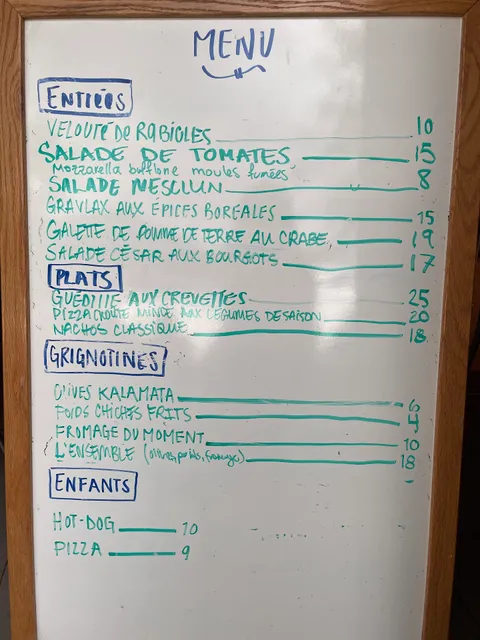 MENU
ENTRÉES
VELOUTÉ DE RABIOLES 10
SALADE DE TOMATES 15
Mozzarella bufflone moules fumées
SALADE MESCLUN 8
GRAVLAX AUX ÉPICES BOREALES 15
GALETTE DE POMME DE TERRE AU CRABE 19
SALADE CÉSAR AUX BOURGOTS 17
PLATS
GUEDILLE AUX CREVETTES 25
PIZZA CROUTE MINCE AUX LÉGUMES DE SAISON 20
NACHOS CLASSIQUE 18
GRIGNOTINES
OLIVES KALAMATA 6
POIDS CHICHES FRITS 4
FROMAGE DU MOMENT 10
L'ENSEMBLE (olives, poids, fromage) 18
ENFANTS
HOT-DOG 10
PIZZA 9